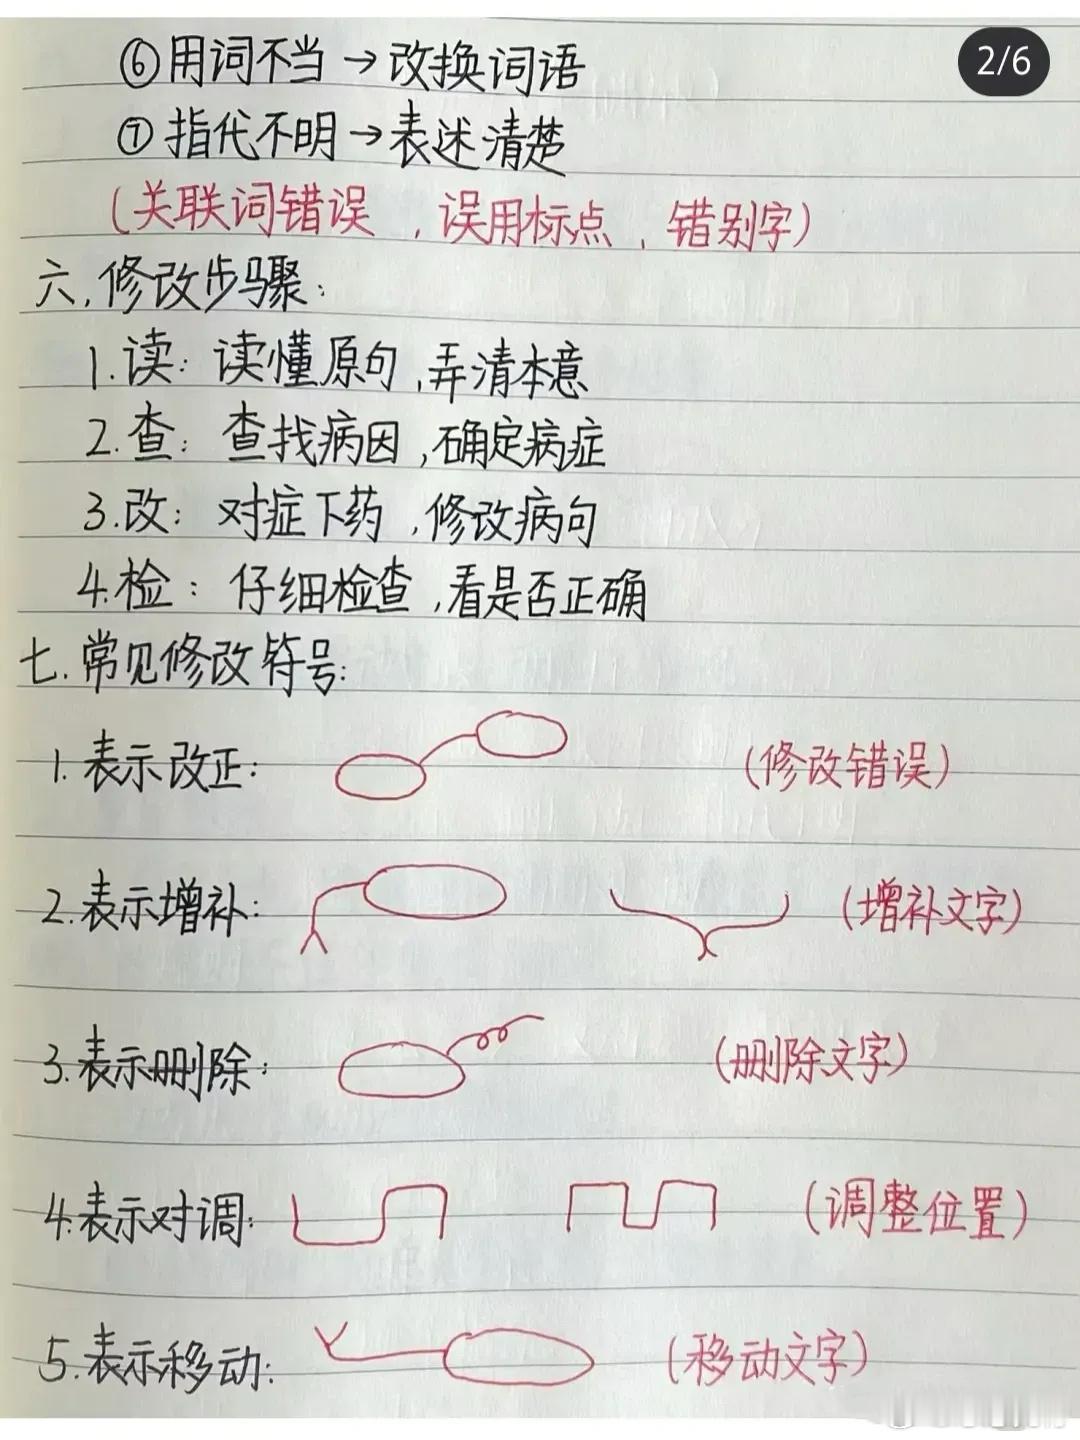 2/6
⑥用词不当→改换词语
⑦指代不明→表述清楚
(关联词错误,误用标点,错别字)
六.修改步骤:
1.读: 读懂原句,弄清本意
2.查: 查找病因,确定病症
3.改: 对症下药,修改病句
4.检: 仔细检查,看是否正确
七.常见修改符号:
1.表示改正: (修改错误)
2.表示增补: (增补文字)
3.表示删除: (删除文字)
4.表示对调: (调整位置)
5.表示移动: (移动文字)